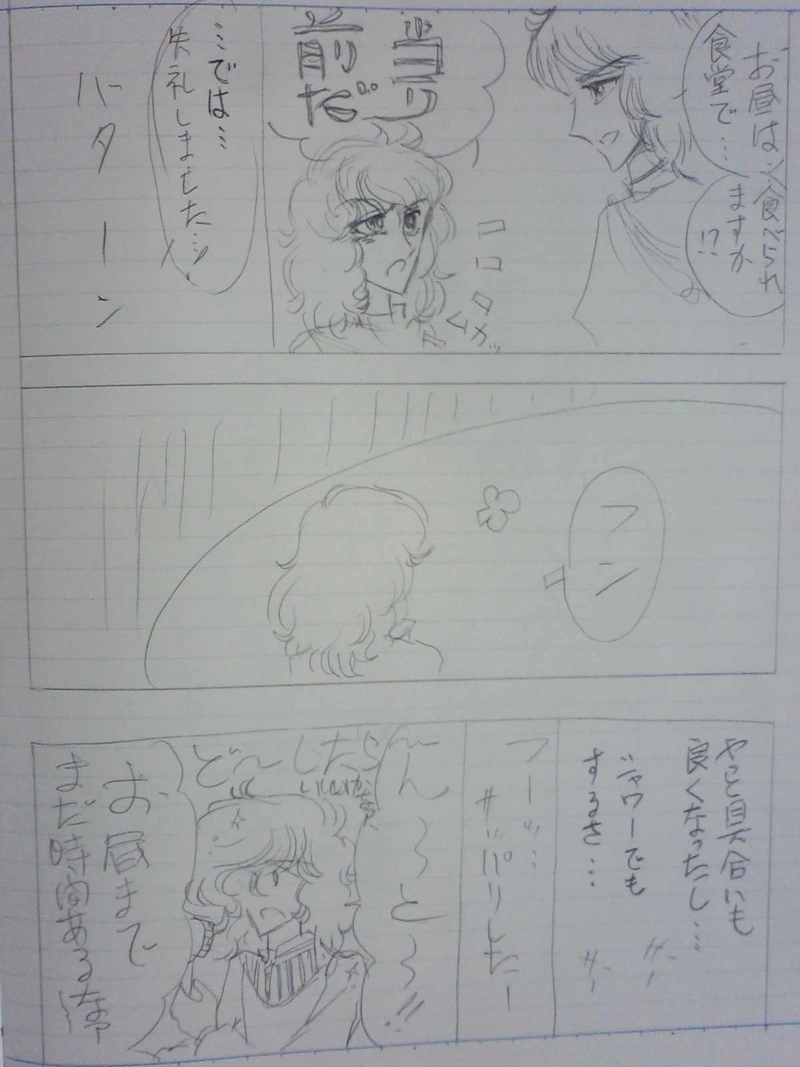 お昼は…食べられ
ますか
!?
食堂で…
当り
前だ
コロタ
ムカッ
…では…
失礼しました…
バターン
フン
やっと具合いも
良くなったし…
シャワーでも
するさ…
ザー
ザー
フーッ…
サッパリしたー
ん～と～!!
どーしたら
いいかなぁ
お昼まで
まだ時間あるなァ